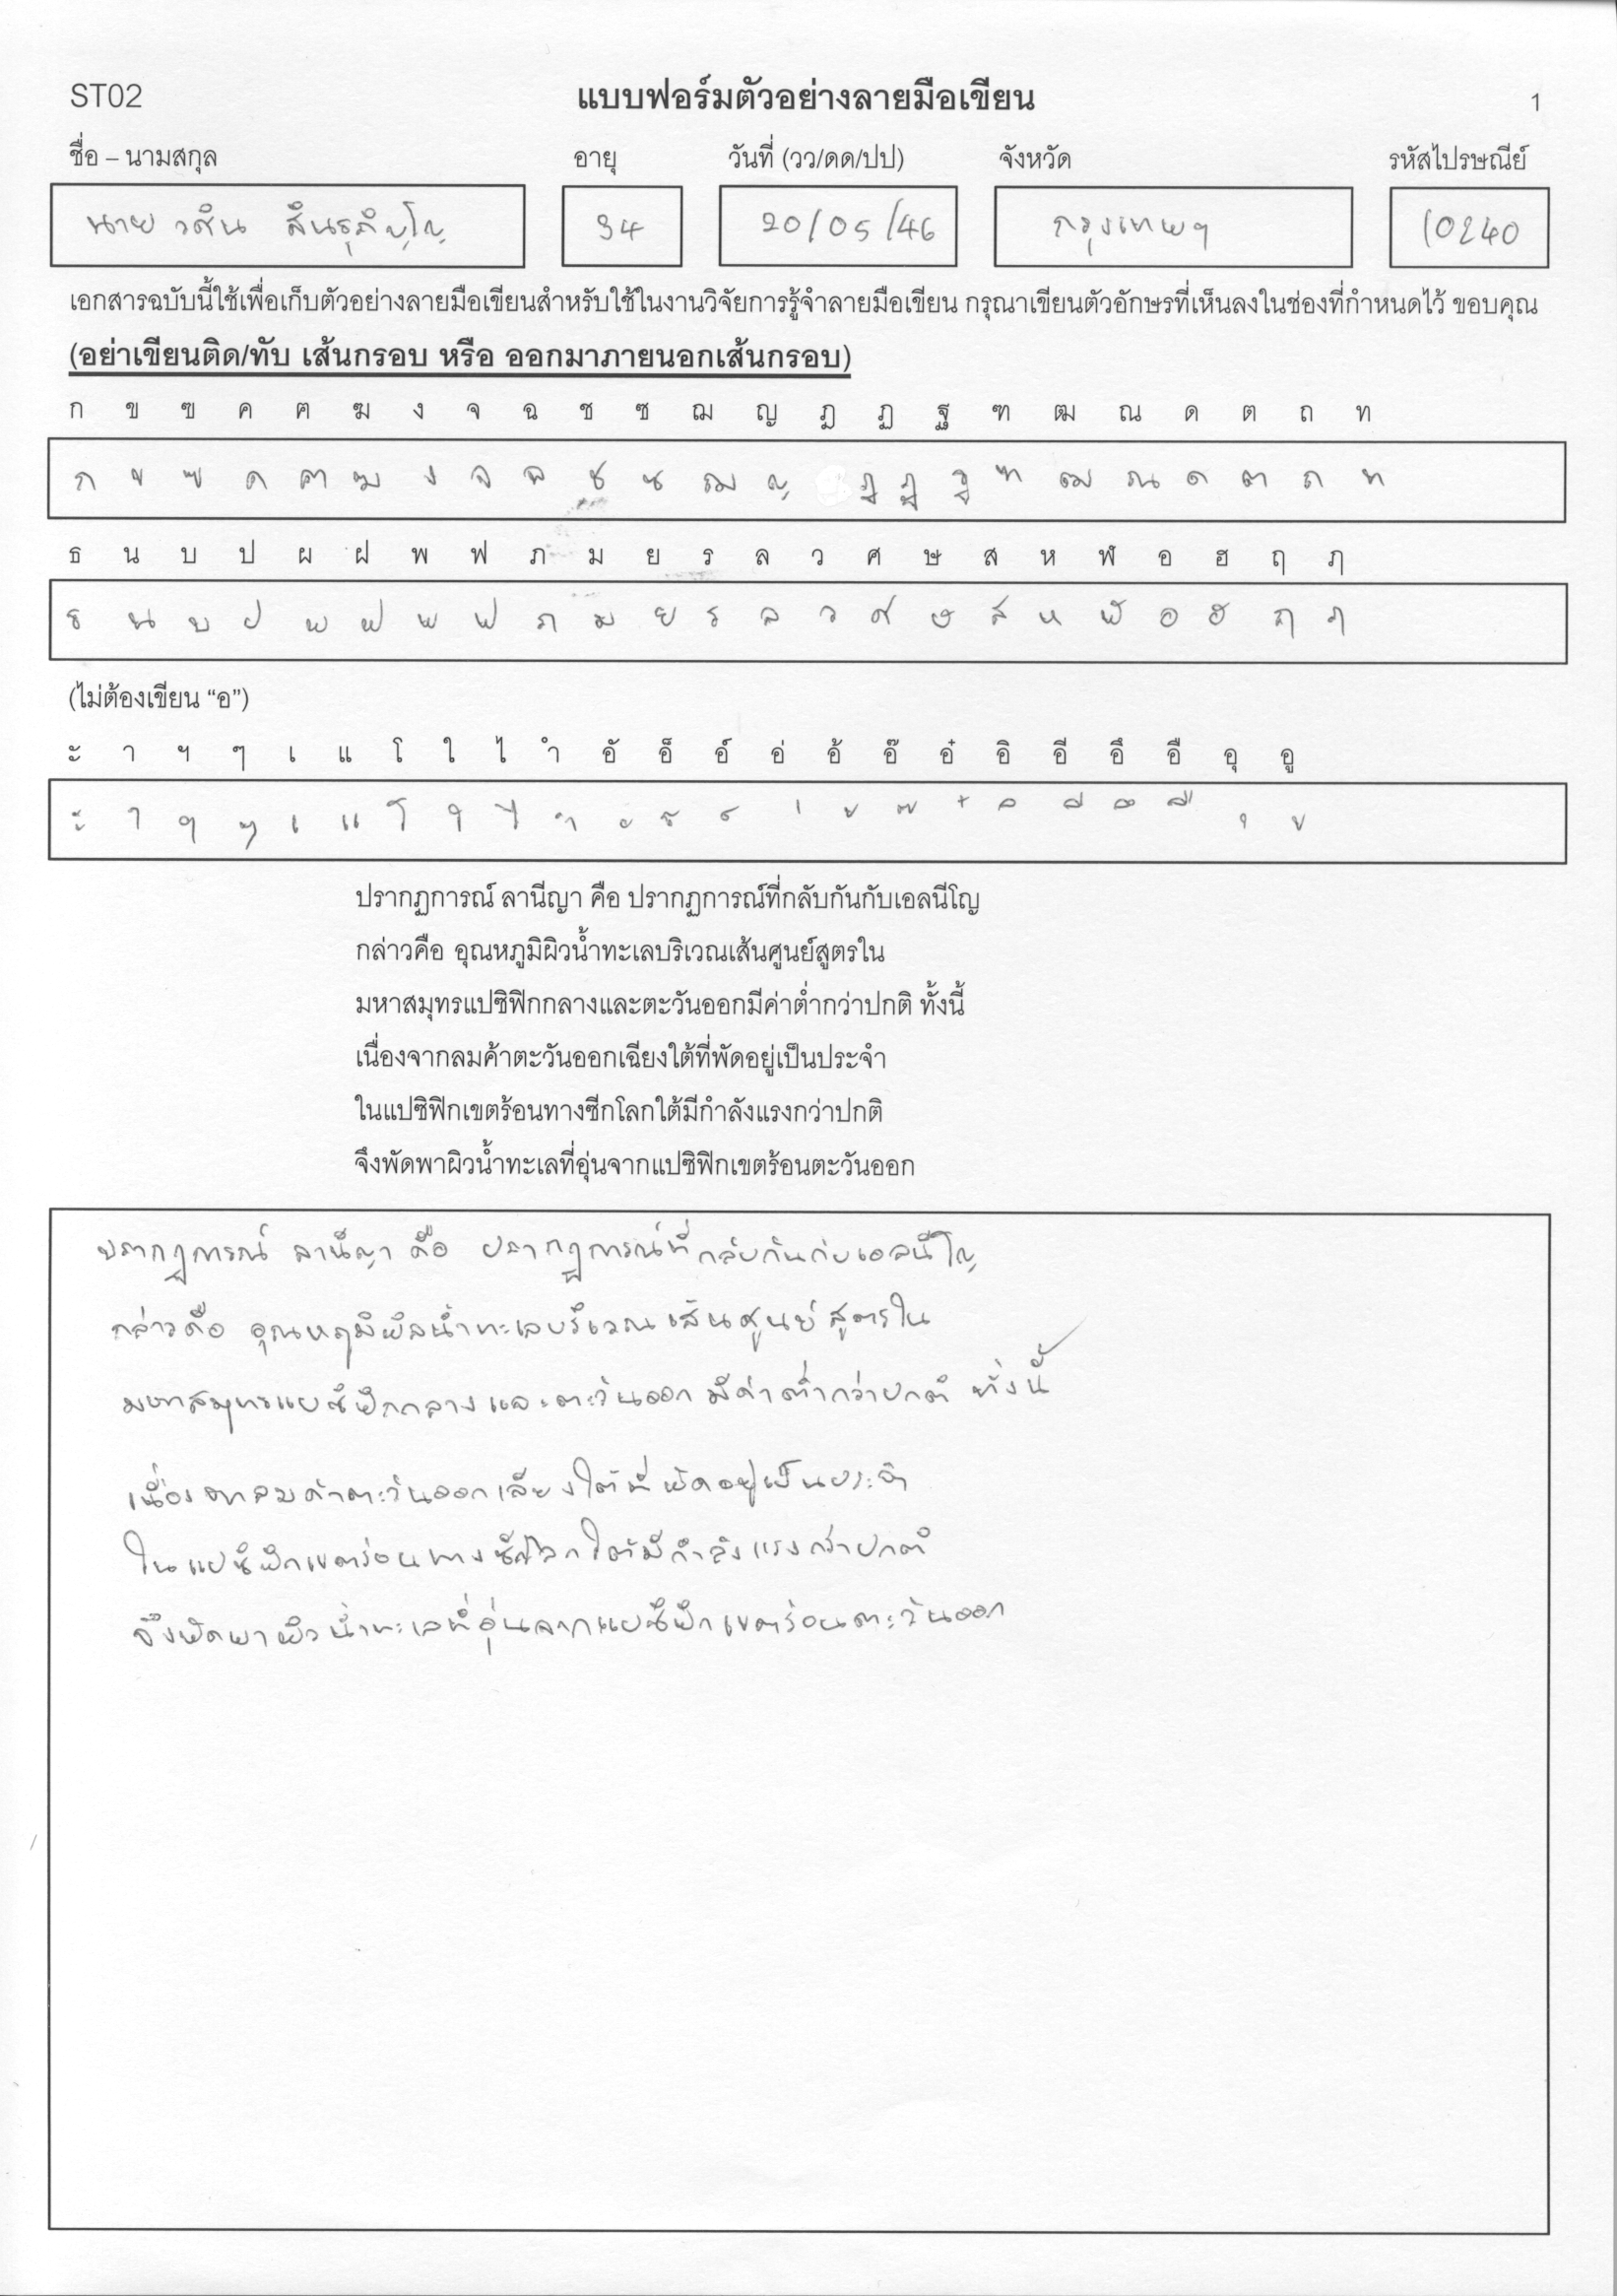 ST02 แบบฟอร์มตัวอย่างลายมือเขียน 1
ชื่อ – นามสกุล อายุ วันที่ (วว/ดด/ปป) จังหวัด รหัสไปรษณีย์
นาย วศิน สินธุภิญโญ 34 20/05/46 กรุงเทพฯ 10240
เอกสารฉบับนี้ใช้เพื่อเก็บตัวอย่างลายมือเขียนสำหรับใช้ในงานวิจัยการรู้จำลายมือเขียน กรุณาเขียนตัวอักษรที่เห็นลงในช่องที่กำหนดไว้ ขอบคุณ
(อย่าเขียนติด/ทับ เส้นกรอบ หรือ ออกมาภายนอกเส้นกรอบ)
ก ข ฃ ค ฅ ฆ ง จ ฉ ช ซ ฌ ญ ฎ ฏ ฐ ฑ ฒ ณ ด ต ถ ท
ก ข ฃ ค ฅ ฆ ง จ ฉ ช ซ ฌ ญ ฎ ฏ ฐ ฑ ฒ ณ ด ต ถ ท
ธ น บ ป ผ ฝ พ ฟ ภ ม ย ร ล ว ศ ษ ส ห ฬ อ ฮ ฤ ฦ
ธ น บ ป ผ ฝ พ ฟ ภ ม ย ร ล ว ศ ษ ส ห ฬ อ ฮ ฤ ฦ
(ไม่ต้องเขียน “อ”)
ะ า ฯ ๆ เ แ โ ใ ไ ำ อั อ็ อ์ อ่ อ้ อ๊ อ๋ อิ อี อึ อื อุ อู
ะ า ฯ ๆ เ แ โ ใ ไ ำ ั ็ ์ ่ ้ ๊ ๋ ิ ี ึ ื ุ ู
ปรากฏการณ์ ลานีญา คือ ปรากฏการณ์ที่กลับกันกับเอลนีโญ
กล่าวคือ อุณหภูมิผิวน้ำทะเลบริเวณเส้นศูนย์สูตรใน
มหาสมุทรแปซิฟิกกลางและตะวันออกมีค่าต่ำกว่าปกติ ทั้งนี้
เนื่องจากลมค้าตะวันออกเฉียงใต้ที่พัดอยู่เป็นประจำ
ในแปซิฟิกเขตร้อนทางซีกโลกใต้มีกำลังแรงกว่าปกติ
จึงพัดพาผิวน้ำทะเลที่อุ่นจากแปซิฟิกเขตร้อนตะวันออก
ปรากฏการณ์ ลานีญา คือ ปรากฏการณ์ที่กลับกันกับเอลนีโญ
กล่าวคือ อุณหภูมิผิวน้ำทะเลบริเวณเส้นศูนย์สูตรใน
มหาสมุทรแปซิฟิกกลางและตะวันออกมีค่าต่ำกว่าปกติ ทั้งนี้
เนื่องจากลมค้าตะวันออกเฉียงใต้ที่พัดอยู่เป็นประจำ
ในแปซิฟิกเขตร้อนทางซีกโลกใต้มีกำลังแรงกว่าปกติ
จึงพัดพาผิวน้ำทะเลที่อุ่นจากแปซิฟิกเขตร้อนตะวันออก